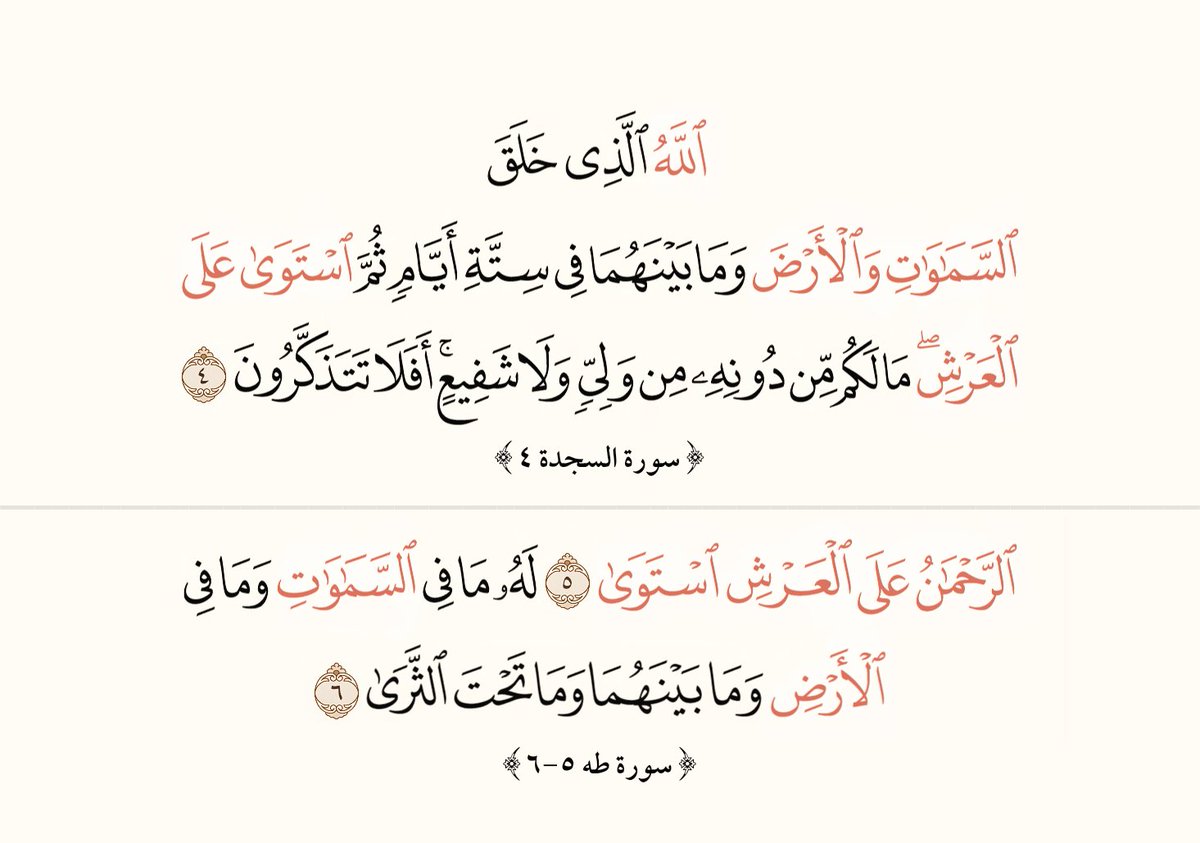 ٱللَّهُ ٱلَّذِى خَلَقَ
ٱلسَّمَـٰوَٰتِ وَٱلْأَرْضَ وَمَا بَيْنَهُمَا فِى سِتَّةِ أَيَّامٍ ثُمَّ ٱسْتَوَىٰ عَلَى
ٱلْعَرْشِ ۖ مَا لَكُم مِّن دُونِهِۦ مِن وَلِىٍّ وَلَا شَفِيعٍ ۚ أَفَلَا تَتَذَكَّرُونَ ٤
﴿ سورة السجدة ٤ ﴾
ٱلرَّحْمَـٰنُ عَلَى ٱلْعَرْشِ ٱسْتَوَىٰ ٥ لَهُۥ مَا فِى ٱلسَّمَـٰوَٰتِ وَمَا فِى
ٱلْأَرْضِ وَمَا بَيْنَهُمَا وَمَا تَحْتَ ٱلثَّرَىٰ ٦
﴿ سورة طه ٥-٦ ﴾